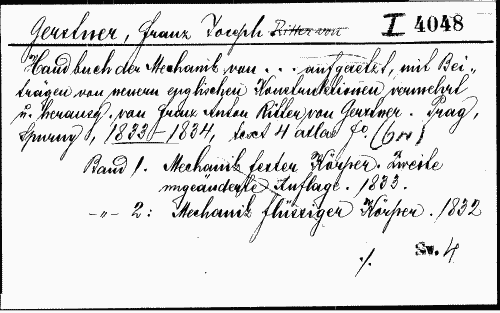 Gerstner, Franz Joseph Ritter von I 4048
Handbuch der Mechanik von ... aufgesetzt, mit Bei-
trägen von neuern englischen Konstruktionen vermehrt
u. herausg. von Franz Anton Ritter von Gerstner. Prag,
Spurny, 1833-1834, text 4 atlas fo. (600)
Band 1. Mechanik fester Körper. Zweite
ungeänderte Auflage. 1833.
-"- 2: Mechanik flüssiger Körper. 1832
./. Sv. 4